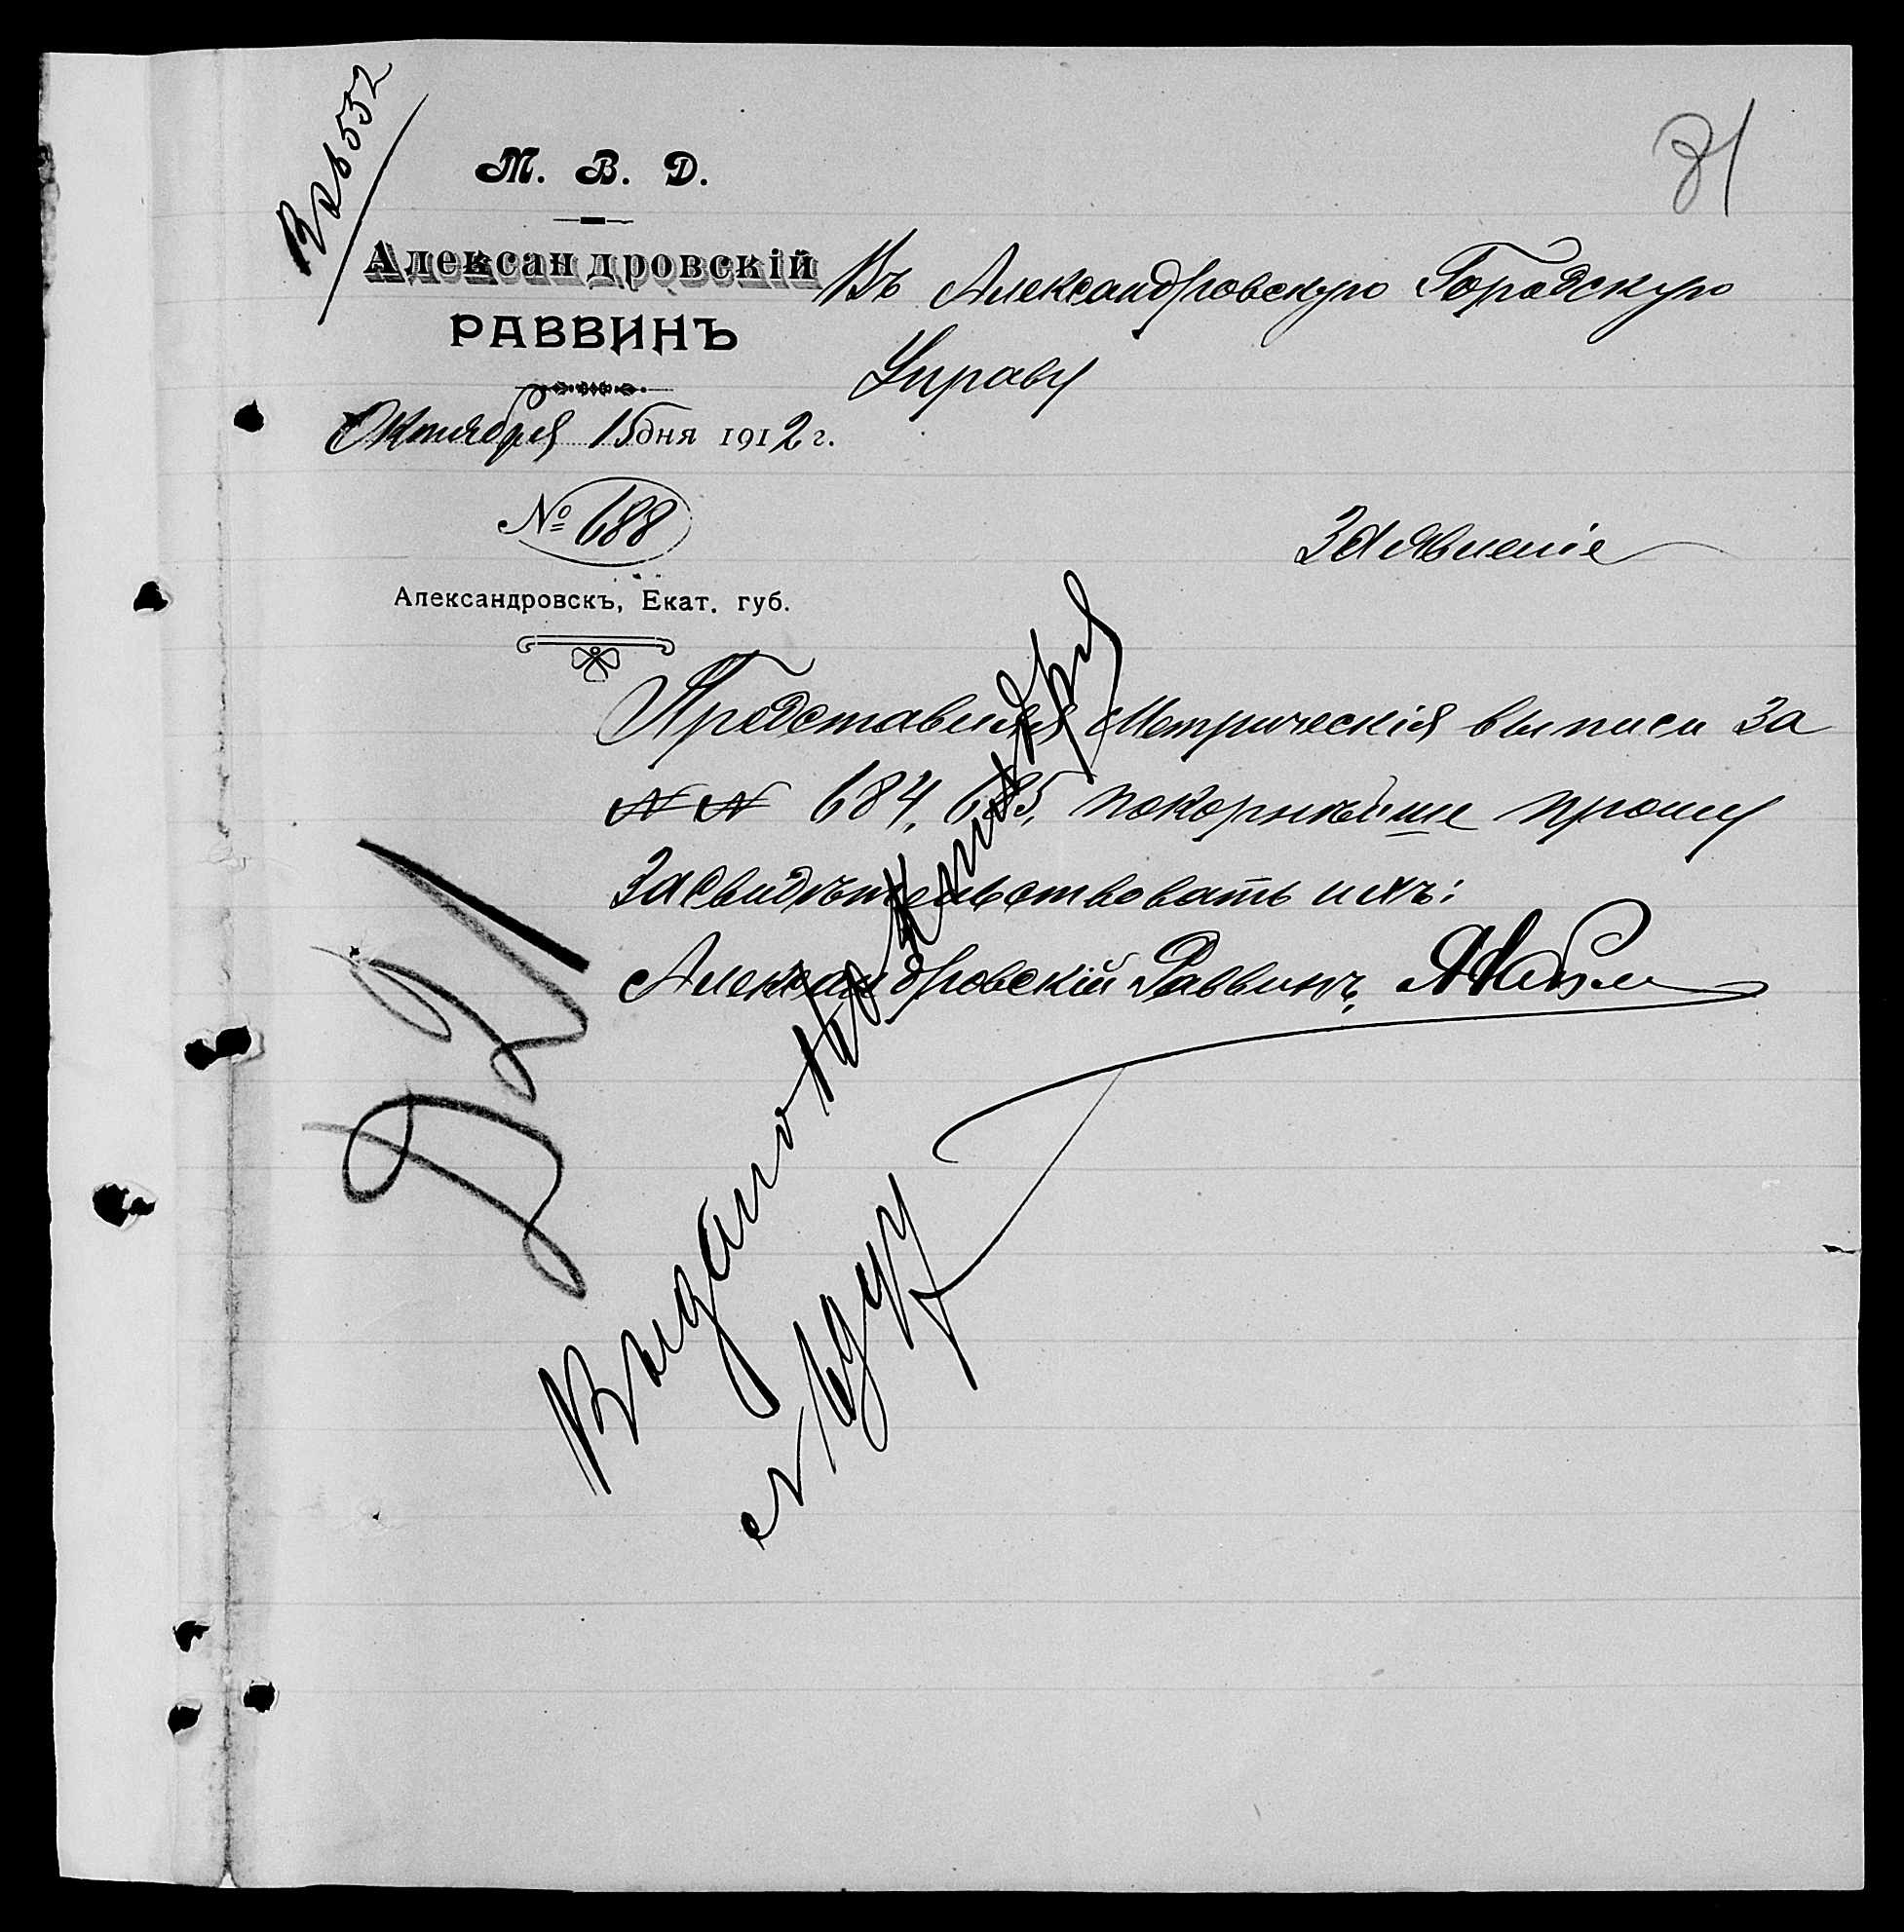 81
М. В. Д.
Александровскій
РАВВИНЪ
Октября 15 дня 1912 г.
№ 688
Александровскъ, Екат. губ.
Въ Александровскую Городскую
Управу
Заявленіе
Представляя метрическія выписи за
№№ 684, 685, покорнѣйше прошу
засвидѣтельствовать ихъ.
Александровскій Раввинъ
Выдано